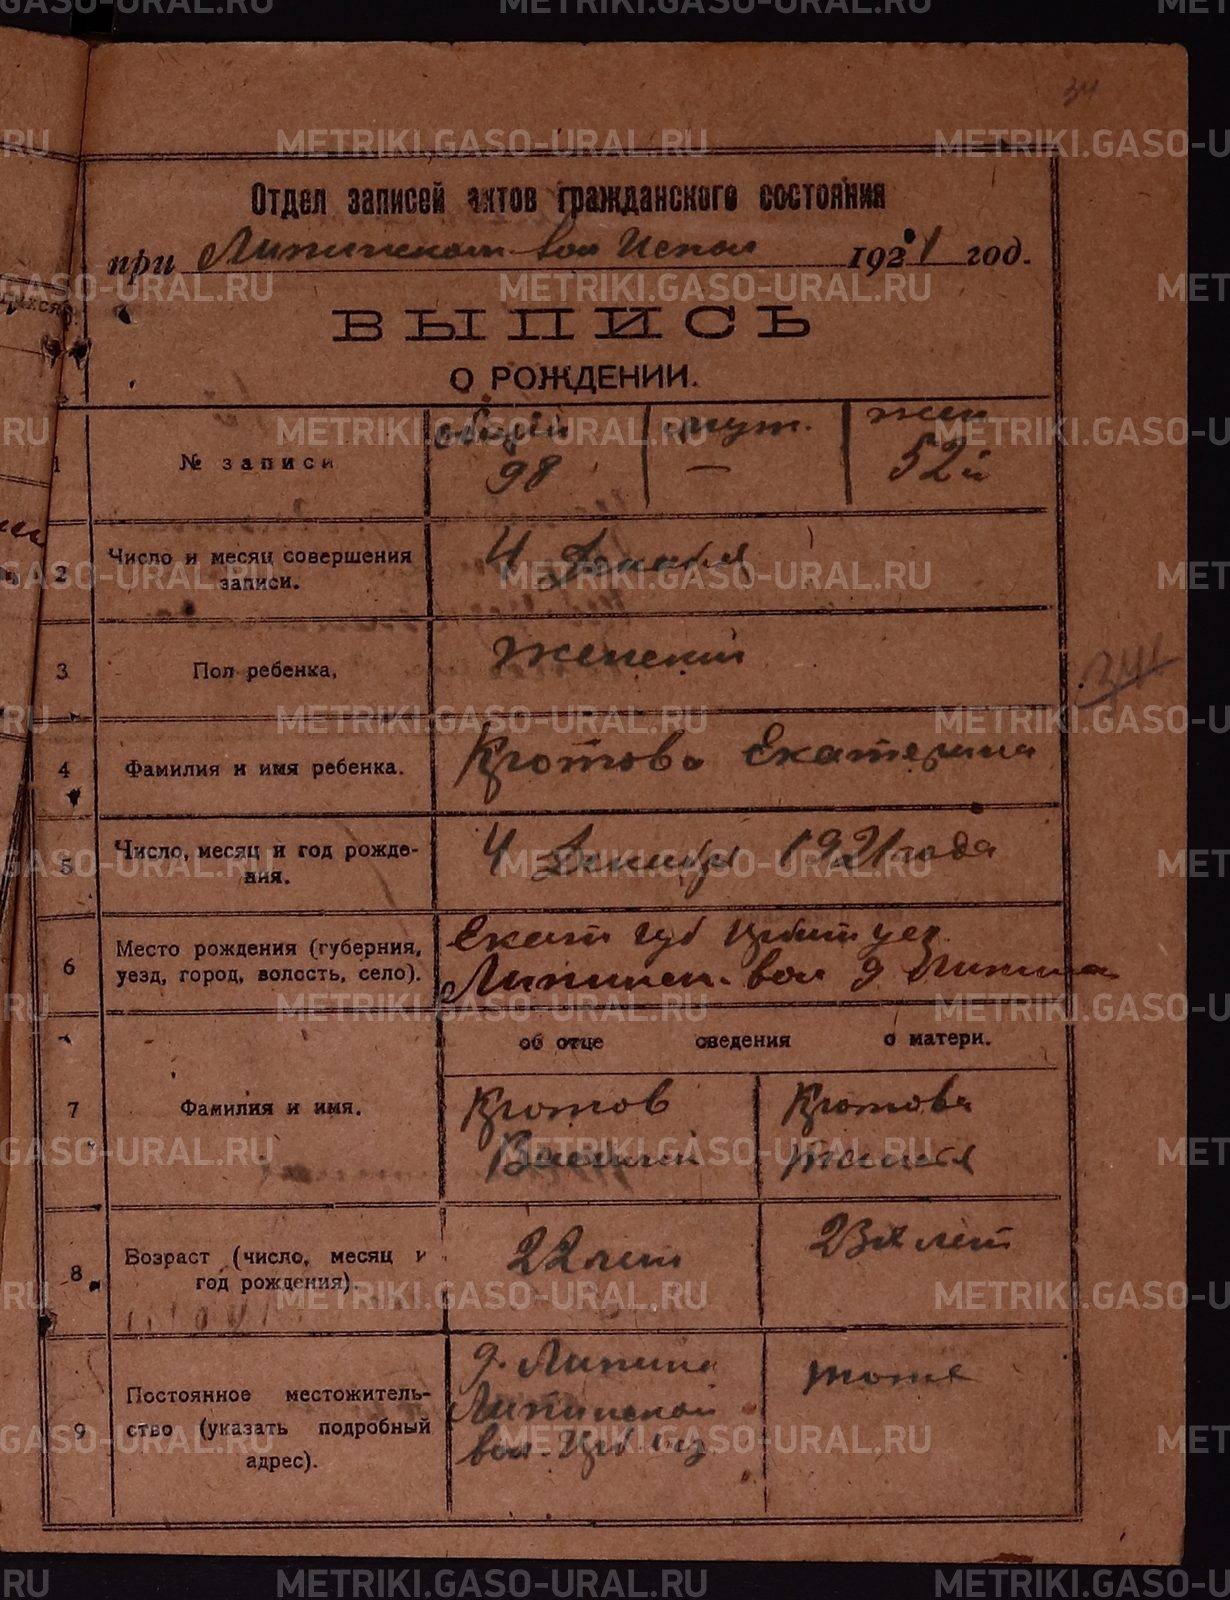 34
Отдел записей актов гражданского состояния
при Липинском вол Испол 1921 год.
ВЫПИСЬ
О РОЖДЕНИИ.
1 № записи общий муж. жен
98 — 52й
2 Число и месяц совершения записи. 4 Декабря
3 Пол ребенка. Женский
34
4 Фамилия и имя ребенка. Кротова Екатерина
5 Число, месяц и год рожде-
ния. 4 Декабря 1921 года
6 Место рождения (губерния, Екат губ Ирбит уез.
уезд, город, волость, село). Липинск. вол д Липина
об отце сведения о матери.
7 Фамилия и имя. Кротов Кротова
Василий
8 Возраст (число, месяц и
год рождения). 22 лет 23х лет
9 Постоянное местожитель-
ство (указать подробный
адрес). д. Липина тоже
Липинской
вол. Ирб. уез.
METRIKI.GASO-URAL.RU